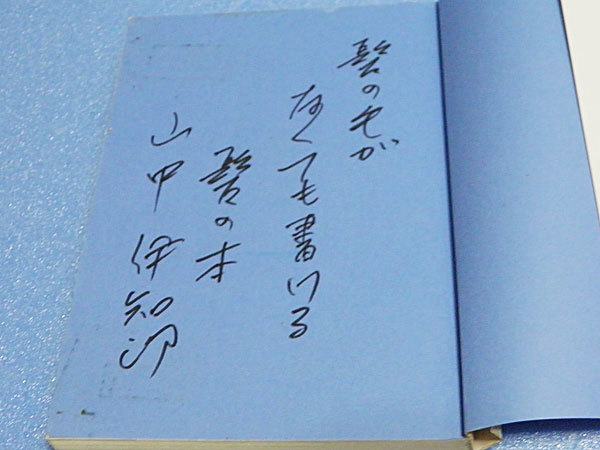 髪の毛が
なくても書ける
髪の本
山中伊知郎